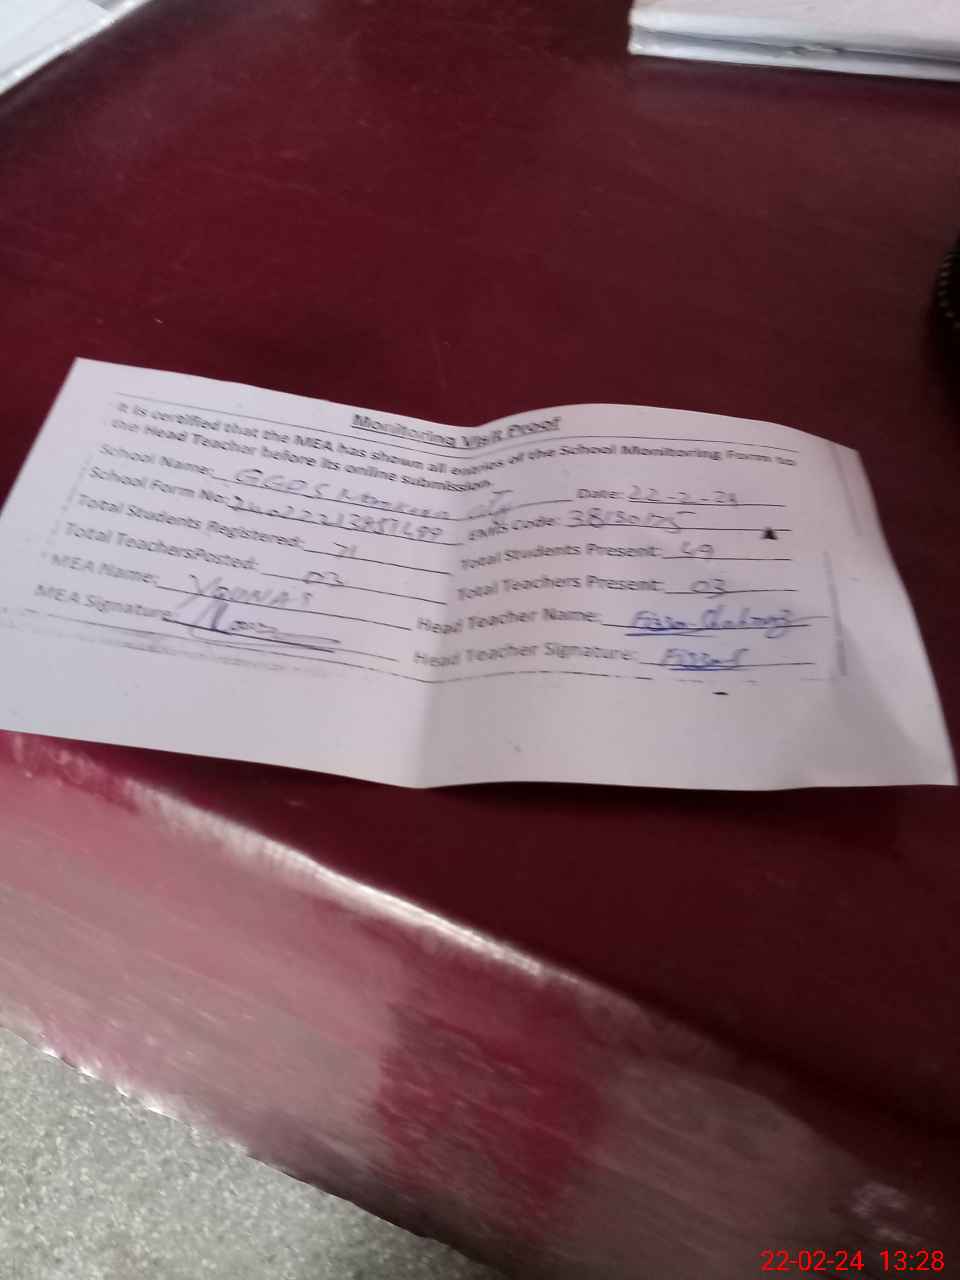 Monitoring Visit Proof
It is certified that the MEA has shown all entries of the School Monitoring Form to
the Head Teacher before its online submission.
School Name: GGPS Date: 22-2-24
School Form No: EMIS Code: 38130175
Total Students Registered: 71 Total Students Present: 49
Total TeachersPosted: 03 Total Teachers Present: 03
MEA Name: YOUNAS Head Teacher Name: Fizza
MEA Signature Head Teacher Signature: Fizza
22-02-24 13:28